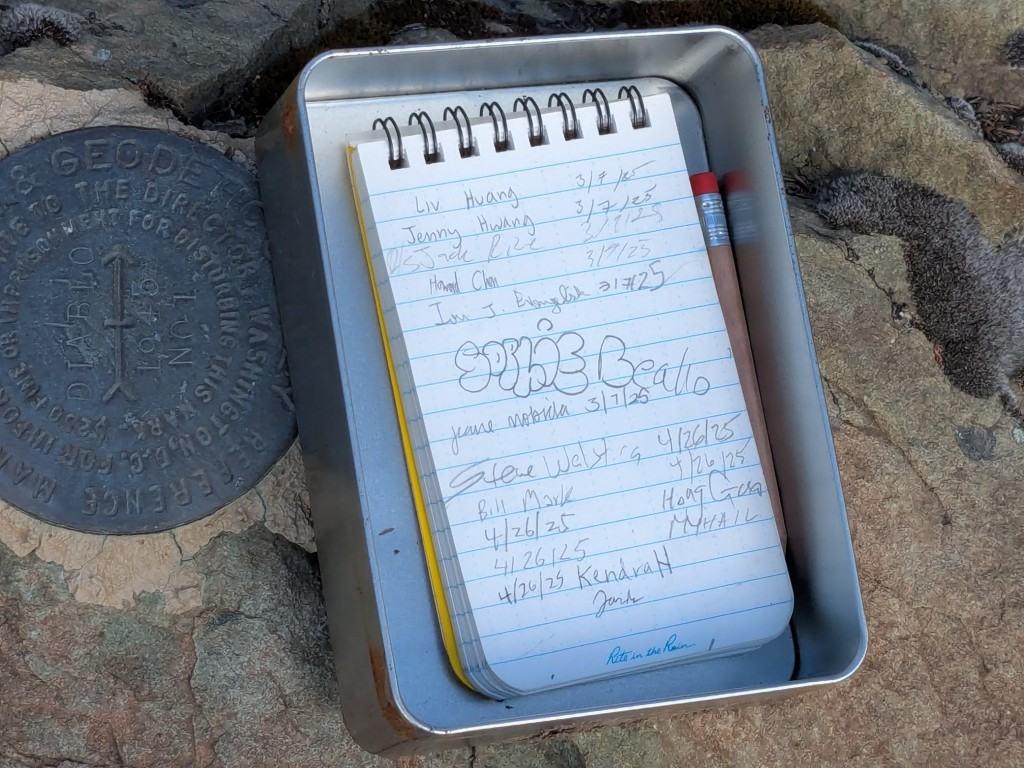 & GEODE
WRITE TO THE DIRECTOR
WASHINGTON, D.C.
FOR DISTURBING THIS MARK.
$250 FINE OR IMPRISONMENT
DIABLO
1945
NO 1
REFERENCE MARK
Liv Huang 3/7/25
Jenny Hwang 3/7/25
Jack 3/7/25
Howard Chen 3/7/25
Ian J. 3/7/25
SOPHIE Beallo
3/7/25
Steve 4/26/25
Bill Mark 4/26/25
4/26/25 Hong
4/26/25 MYHAIL
4/26/25 Kendra H
Rite in the Rain